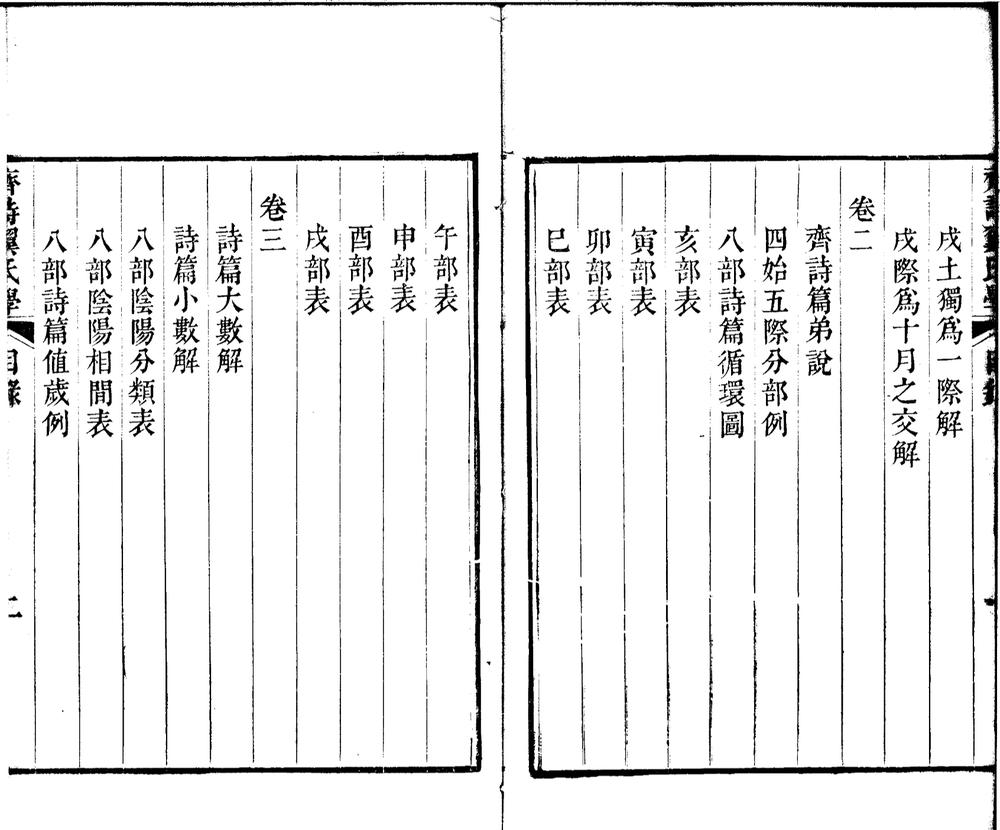 戌土獨爲一際解
戌際爲十月之交解
卷二
齊詩篇弟說
四始五際分部例
八部詩篇循環圖
亥部表
寅部表
卯部表
巳部表
午部表
申部表
酉部表
戌部表
卷三
詩篇大數解
詩篇小數解
八部陰陽分類表
八部陰陽相間表
八部詩篇値歲例
齊詩翼氏學 目錄 二